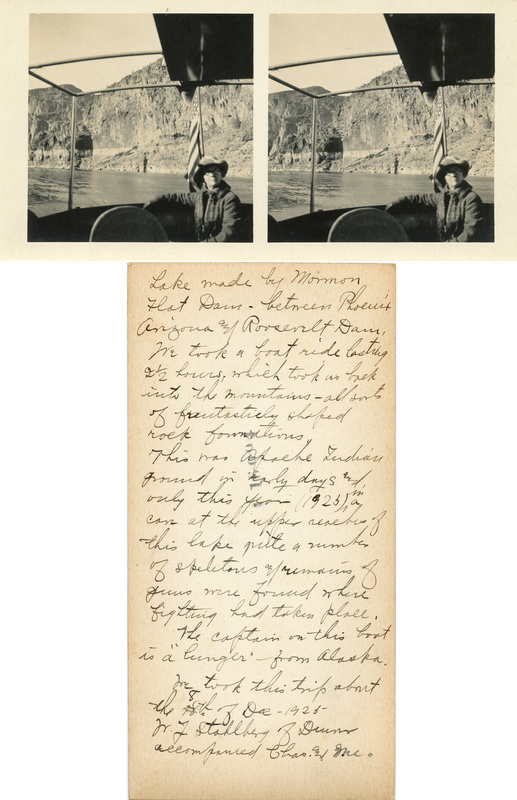 Lake made by Mormon
Flat Dam - between Phoenix
Arizona & Roosevelt Dam.
We took a boat ride lasting
2½ hours, which took us back
into the mountains - all sorts
of fantasticly shaped
rock formations.
This was Apache Indian
ground in early days and,
only this year (1925), in a
cave at the upper reaches of
this lake quite a number
of skeletons & remains of
guns were found where
fighting had taken place.
The captain on this boat
is a "lunger" - from Alaska.
We took this trip about
the 8th of Dec - 1925-
W. J. Stahlberg of Denver
accompanied Chas. & Me.